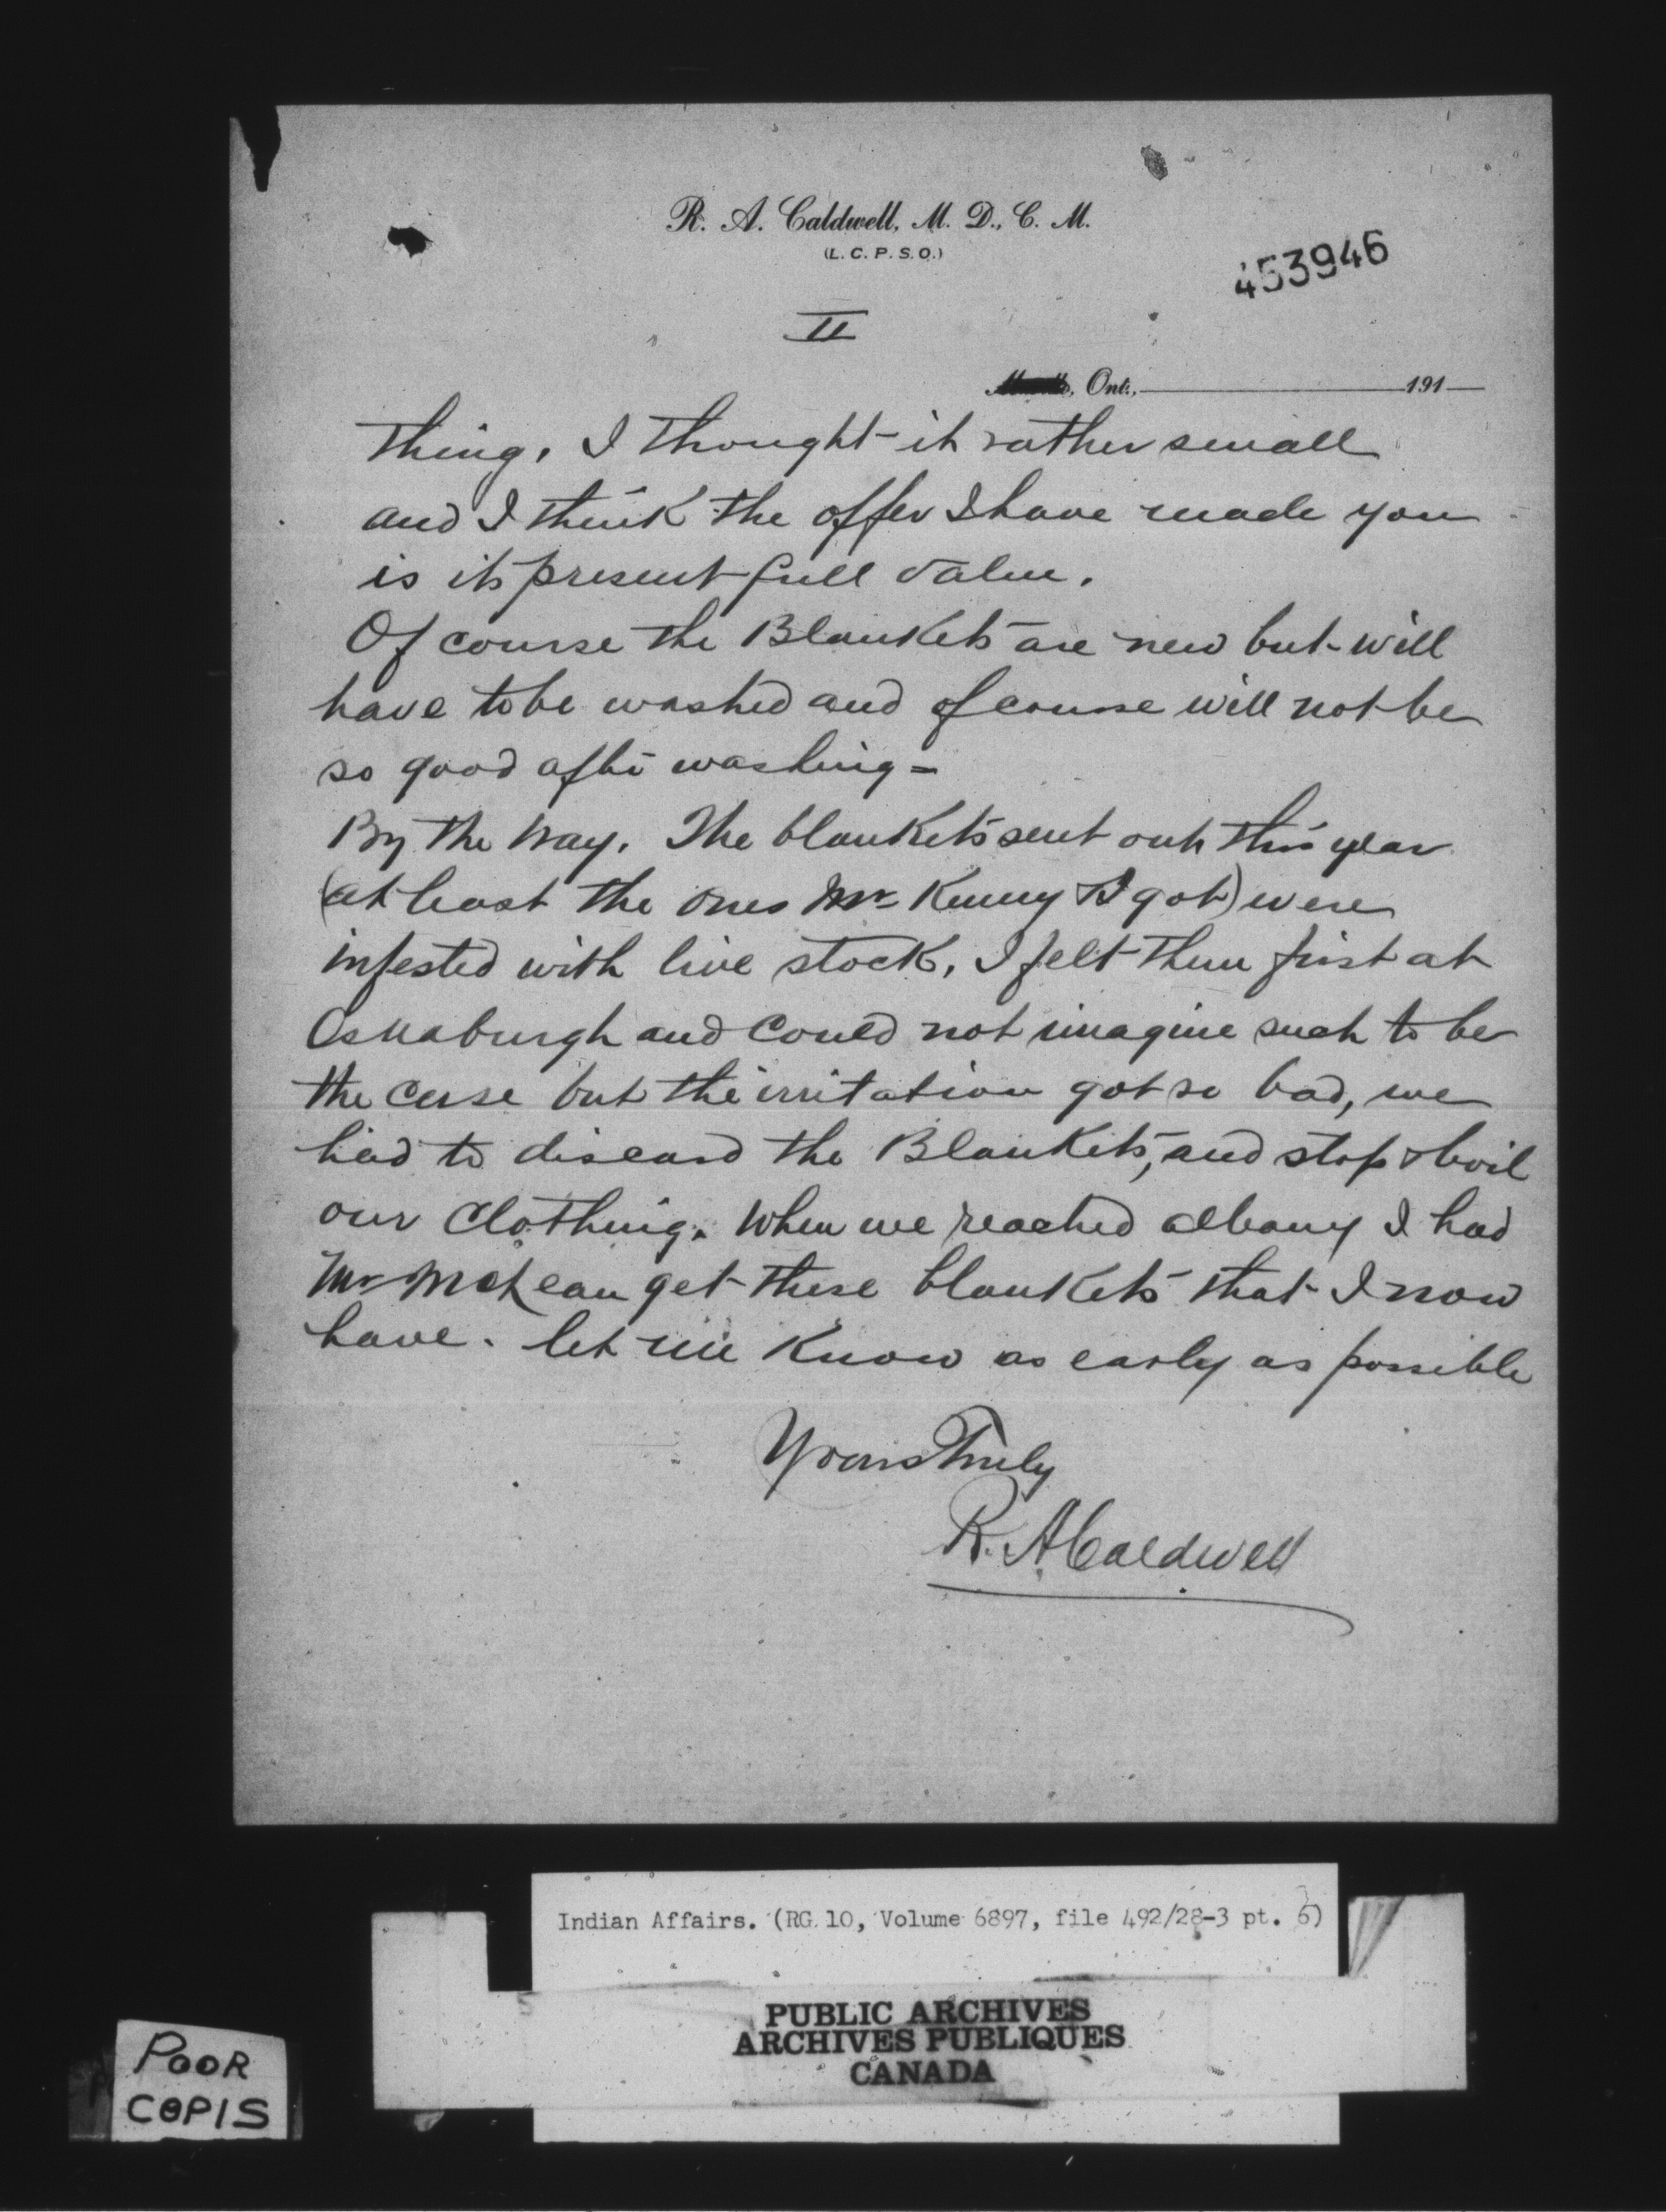 R. A. Caldwell, M. D., C. M.
(L. C. P. S. O.)
453946
II
, Ont., 191
thing. I thought it rather small
and I think the offer I have made you
is its present full value.
Of course the Blankets are new but will
have to be washed and of course will not be
so good after washing -
By the way. The blankets sent out this year
(at least the ones Mr Kenny & I got) were
infested with live stock, I felt them first at
Osnaburgh and could not imagine such to be
the case but the irritation got so bad, we
had to discard the Blankets, and stop & boil
our clothing. When we reached Albany I had
Mr McLean get these blankets that I now
have. let me know as early as possible
Yours Truly
R. A Caldwell
Indian Affairs. (RG 10, Volume 6897, file 492/28-3 pt. 6)
PUBLIC ARCHIVES
ARCHIVES PUBLIQUES
CANADA
POOR
COPIS